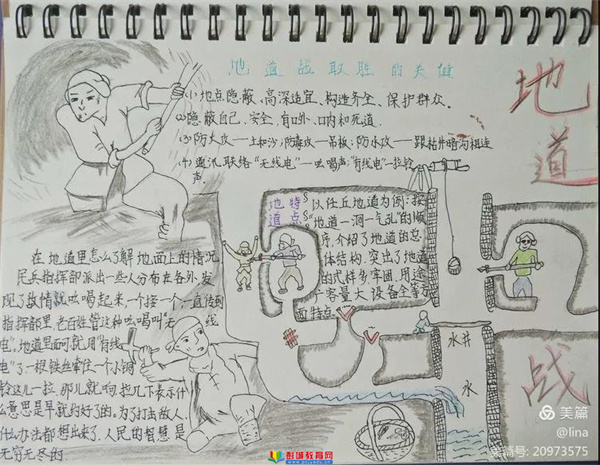 地道战取胜的关键
地道战
(1)地点隐蔽、高深适宜、构造齐全、保护群众。
(2)隐蔽自己、安全、有口外、口内和死道.
(3)防火攻——土和沙;防毒攻——吊板;防水攻——跟枯井暗沟相连
(4)通讯联络"无线电"—吆喝声"有线电"—拉铃
声.
地道
特点
以任丘地道为例:按
"地道—洞—气孔"的顺
序,介绍了地道的总
体结构,突出了地道
的式样多牢固,用途
广容量大设备全等方
面特点.
在地道里怎么了解地面上的情况
民兵指挥部派出一些人分布在各外,发
现了敌情就吆喝起来,一个接一个,一直传到
指挥部里.老百姓管这种吆喝叫"无线
电",地道里面可就用"有线
电"了一根铁丝牵住一个小铜
铃这儿一拉,那儿就响,拉几下表示什
么意思是早就约好了的,为了打击敌人,
什么办法都想出来了,人民的智慧是
无穷无尽的
水井
水
彭城教育网
美篇
@lina
美篇号: 20973575